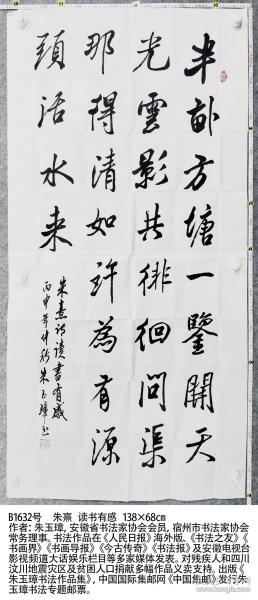 半畝方塘一鑒開天
光雲影共徘徊問渠
那得清如許為有源
頭活水来
朱熹詩读書有感
丙申年仲秋朱玉璋书
B1632号 朱熹 读书有感 138×68cm
作者：朱玉璋，安徽省书法家协会会员，宿州市书法家协会
常务理事。书法作品在《人民日报》海外版、《书法之友》《
书画界》《书画导报》《今古传奇》《书法报》及安徽电视台
影视频道大话娱乐栏目等多家媒体发表。对残疾人和四川
汶川地震灾区及贫困人口捐献多幅作品义卖支持。出版《
朱玉璋书法作品集》，中国国际集邮网《中国集邮》发行朱
玉璋书法专题邮票。